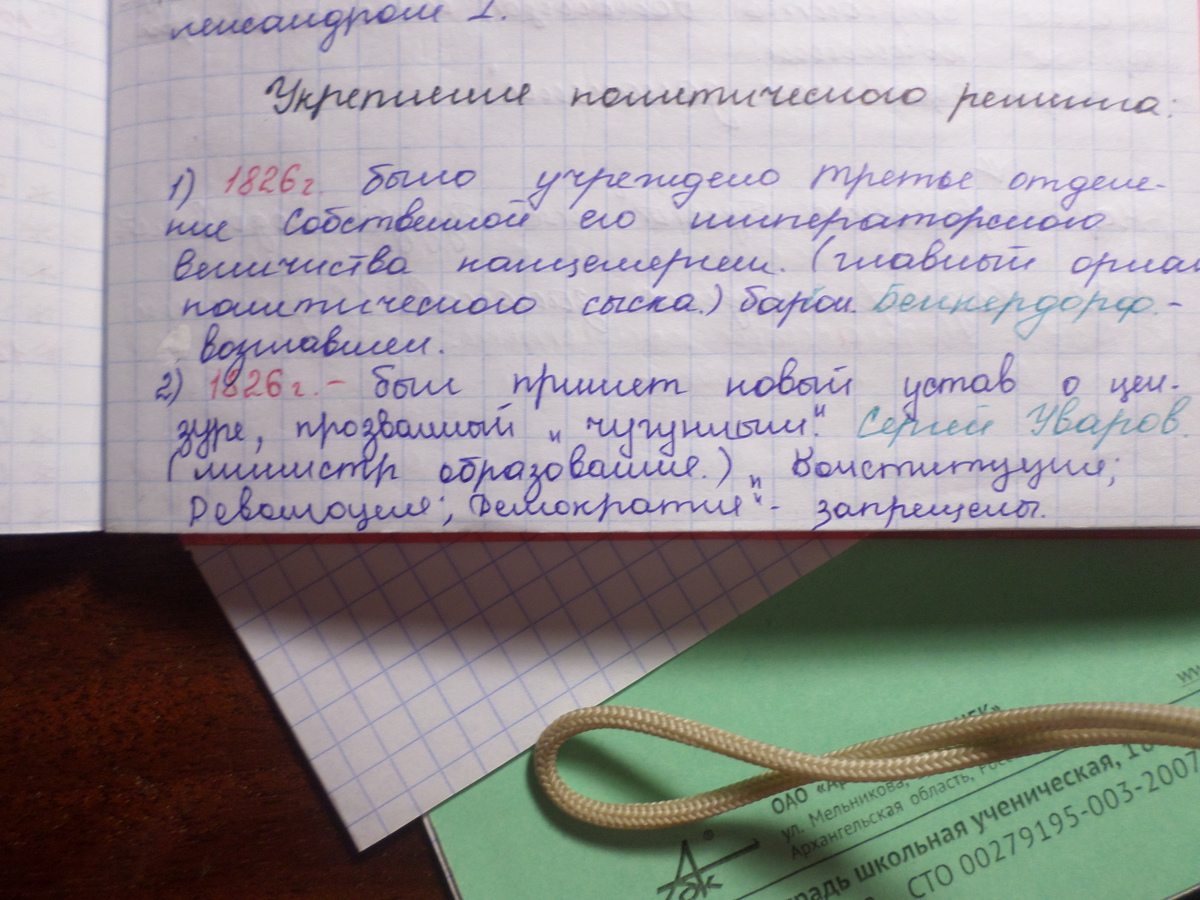 лександром I.
Укрепление политического режима:
1) 1826г. было учреждено третье отделе-
ние Собственной его императорского
величества канцелярии. (главный орган
политического сыска.) барон. Бенкердорф. -
возглавлен.
2) 1826г. - был принят новый устав о цен-
зуре, прозванный „чугунным". Сергей Уваров.
(министр образования.) „Конституция;
Революция; Демократия" - запрещены.
ОАО «А
ул. Мельникова,
Архангельская область, Рос
традь школьная ученическая, 18
СТО 00279195-003-2007